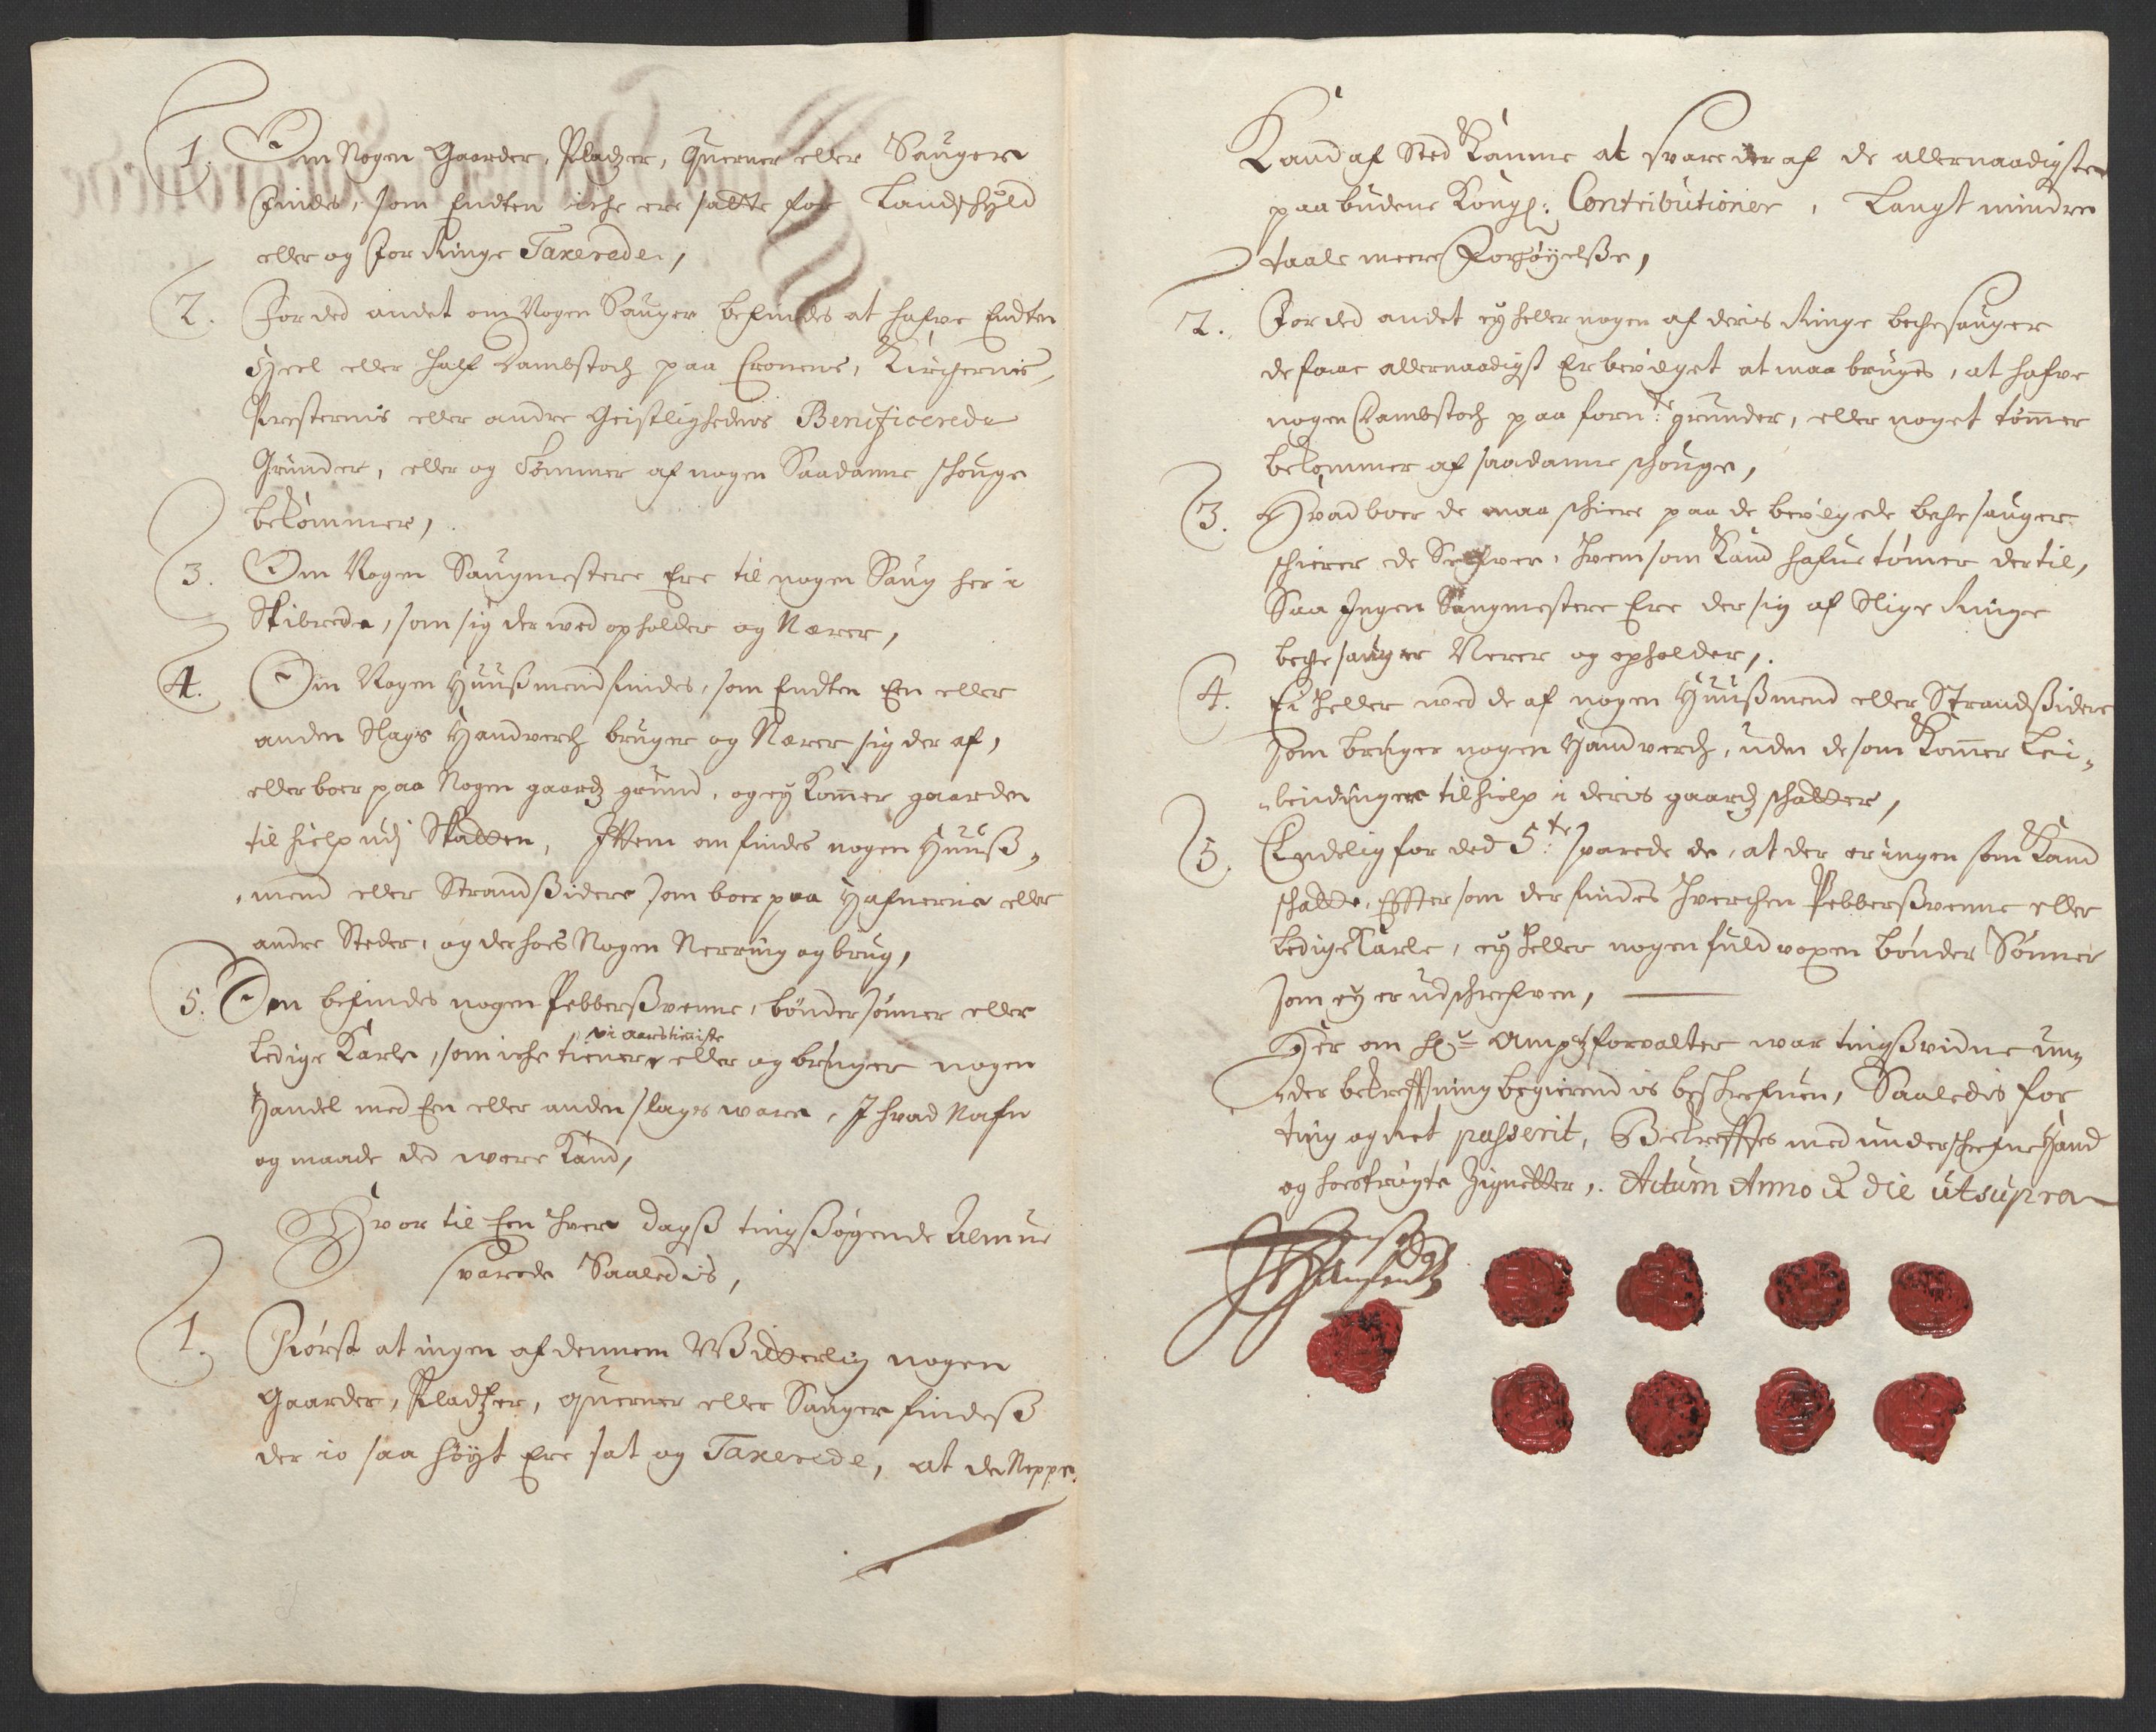 1. Om Nogen Gaarder, Pladzer, Querner eller Sauger
Findes, som Endten iche ere satte for Landschyld
eller og for Ringe Taxerede,
2. For ded andet om Nogen Sauger befindes at hafve Endten
Heel eller half Dambstoch paa Cronens, Kirchernis,
Presternis eller andre Geistlighedens Benificerede
Grunder, eller og Tømmer af nogen Saadanne schouge
bekommer,
3. Om Nogen Saugmestere Ere til nogen Saug her i
Skibrede, som sig der wed opholder og Nærer,
4. Om Nogen Huußmend findes, som Endten En eller
anden Slags Handverch bruger og Nærer sig der af,
eller boer paa Nogen gaards grund, og ey Kommer gaarden
til hielp udj Skatten, Ittem om findes nogen Huuß-
mend eller Strandsidere som boer paa Hafnerne eller
andre Steder, og der hoes Nogen Nerring og brug,
5. Om befindes nogen Pebberßvenne, bønder sønner eller
vi aarstieniste
Ledige Karle, som iche tiener eller og bruger nogen
Handel med Een eller anden slags ware, I hvad Nafn
og maade ded were Kand,
Hvor til Een hver dagß tingßøgende Almue
svarede Saaledis,
1. Først at ingen af dennem Witterlig nogen
Gaarder, Pladtzer, querner eller Sauger findeß
der io saa høyt Ere sat og Taxerede, at de Neppe
Kand af Sted Komme at svare der af de allernaadigste
paabudene Kongl: Contributioner, Langt mindre
taale meere Forhøyelße,
2. For ded andet ey heller nogen af deris Ringe bechesauger
de faae allernaadigst Er bevilget at maa bruges, at hafve
nogen Dambstoch paa fornte grunder, eller noget tømmer
bekommer af saadanne schouge,
3. Hvad boer de maa schiere paa de bevilgede beche sauger
schierer de Selfver, hvem som Kand hafue tømer der til,
Saa Ingen Saugmestere Ere der sig af Slige Ringe
beche sauger Nerer og opholder,
4. Ei heller wed de af nogen Huußmend eller Strandßidere
som bruger nogen Handverch, uden de som Kommer Lei-
lendinger til hielp i deris gaards schatter,
5. Endelig for ded 5te svarede de, at der er ingen som Kand
schatte, Efftersom der findes hverchen Pebberßvenne eller
Ledige Karle, ey heller nogen fuldvoxen bønder Sønner
som ey er udschrefven,
Her om Hr Amptzforvalter war tingßvidne un-
der bekrefftning begierendis beskrefuen, Saaledis for
ting og ret passerit, Bekrefftes med underschrefne Hand
og hoestrøgte Zignetter, Actum Anno & die ut supra